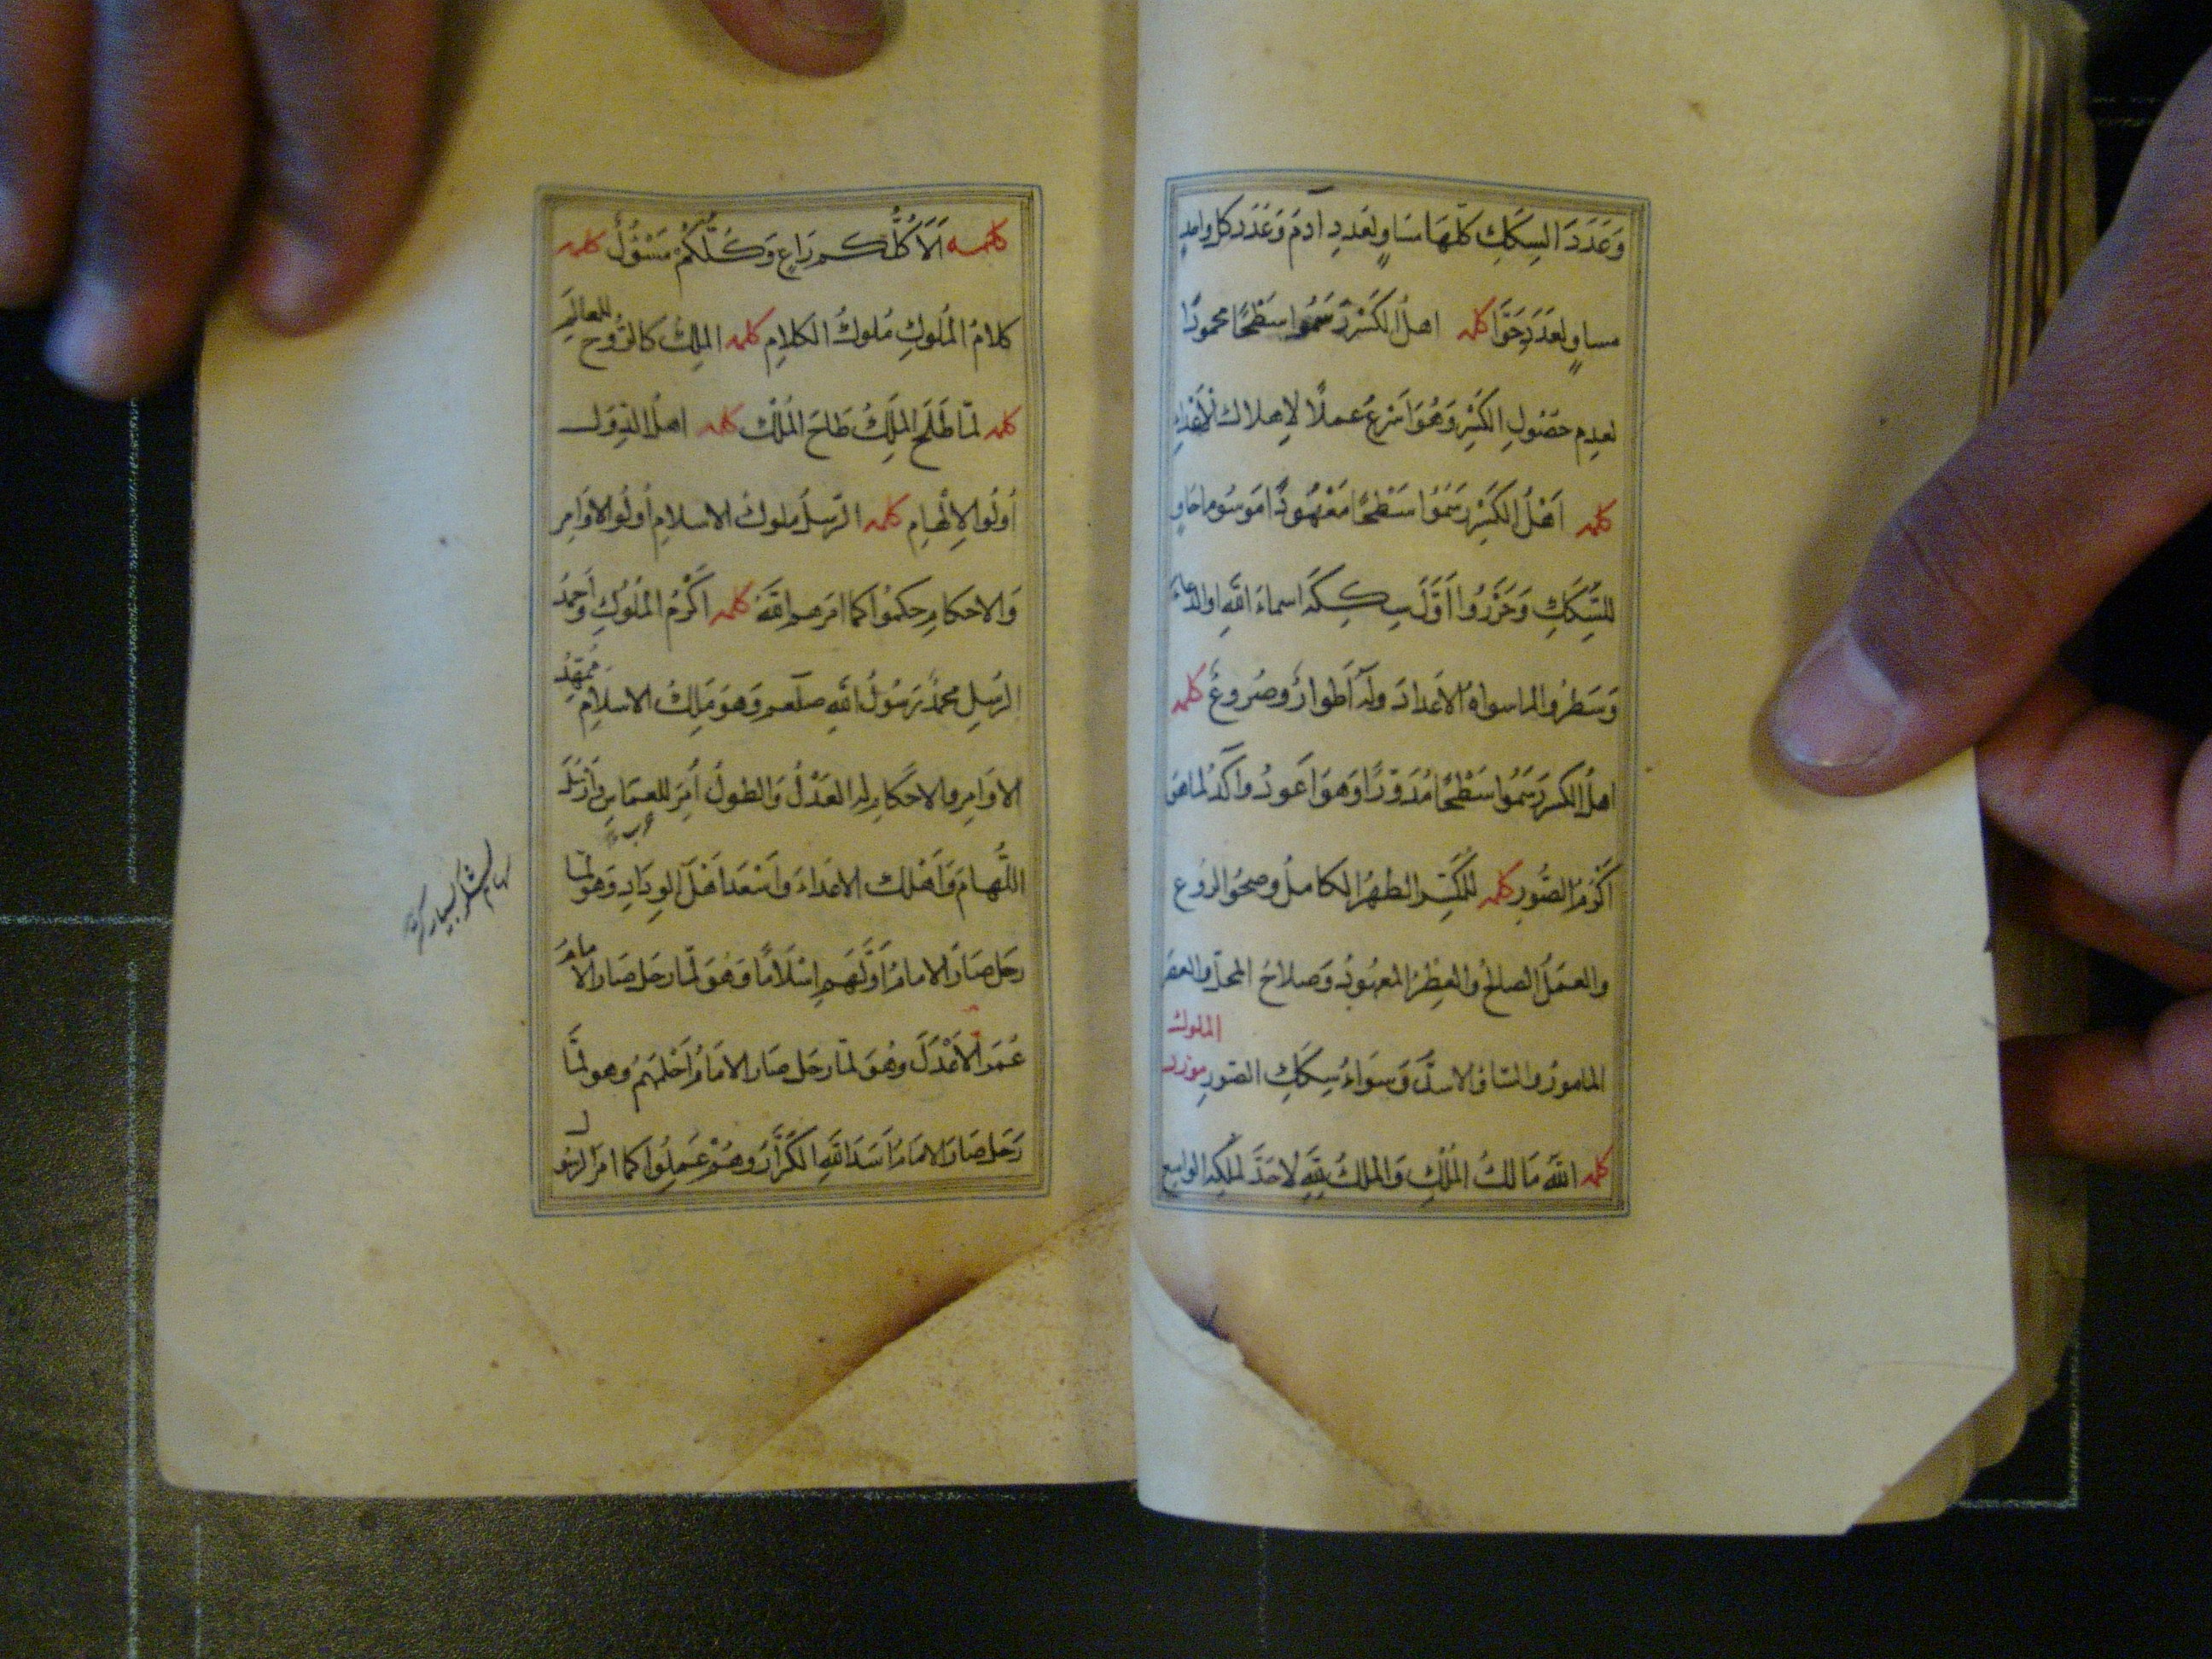 وَعَدَدَ السِكَكِ كلّهَا مسَاوٍ لعَددِ آدمَ وَعَدَد كل واحدٍ
مساوٍ لعَدَدِ حَوّا كلمه اهلُ الكَسْر رَسَمُوا سَطْحًا محمودًا
لعدمِ حصُولِ الكَسْرِ وَهُوَ اَسْرَعُ عملًا لاِهلاك الأعْدَاءِ
كلمه اَهْلُ الكَسْرِ رَسَمُوا سَطْحًا مَعْهُودًا مَوسُومًا حَاوٍ
للسِّكَكِ وَحَرَّرُوا اَوَّلَ سِكَكِهِ اسماءَ اللّهِ او الدعاءَ
وَسَطرُوا لما سواهُ الاَعدادَ وله اَطوارٌ وصُروعٌ كلمه
اهلُ الكسر رَسَمُوا سَطْحًا مُدَوَّرًا وَهوَ اَعودُ واكَدُ لما هو
اَكْرَمُ الصُّوَرِ كلمه للمُكَسِّر الطهرُ الكاملُ وصحوُ الروع
والعمَلُ الصالحُ والعِطْرُ المعهودُ وَصلاحُ المحلّ والعصر
المامورُ والسّاقُ الاسدُّ وَسوَاءُ سِكَكِ الصّورِ مورد
الملوك
كلمه اللّهُ مَالكُ المُلْكِ وَالملكُ للّهِ لا حَدَّ لملكِه الواسع
كلمه اَلاَ كُلُّكم رَاعٍ وَكُلُّكُمْ مَسْئُولٌ كلمه
كلامُ المُلوكِ مُلوكُ الكلامِ كلمه الملِكُ كالرُّوحِ للعالَمِ
كلمه لمّا صَلَحَ الملِكُ صَلحَ المُلْكُ كلمه اهلُ الدِوَل
اُولُوا الاِلْهَامِ كلمه الرّسلُ ملوكُ الاسلامِ اُولُوا الاوَامِر
وَالاحكامِ حكمُوا كما امَرهم اللّهُ كلمه اَكْرَمُ المُلُوكِ وَاَحمدُ
الرُسلِ محمدٌ رَسُولُ اللّهِ صلعم وَهوَ مَالِكُ الاسلامِ مُمَهِّدُ
الاوَامِرِ والاحكامِ له العَدْلُ وَالطولُ اُمِرَ للعمَاسِ وَاَرْسَلَ
اللُّهامَ وَاَهْلَك الاعَداءَ وَاسْعَدَ اَهْلَ الوِدادِ وَهو لمّا
رحَل صَارَ الامامُ اَوَّلَهُم اِسْلَامًا وَهُوَ لمّا رحَل صَار الامامُ
عُمَر الاَعْدَلَ وهُوَ لمّا رحَل صَار الامَامُ اَحْلَمَهُمْ وهو لمَّا
رَحَل صَارَ الامَامُ اَسَدَ اللّهِ الكَرَّارَ وهُمْ عَمِلُوا كما امَر الرسول